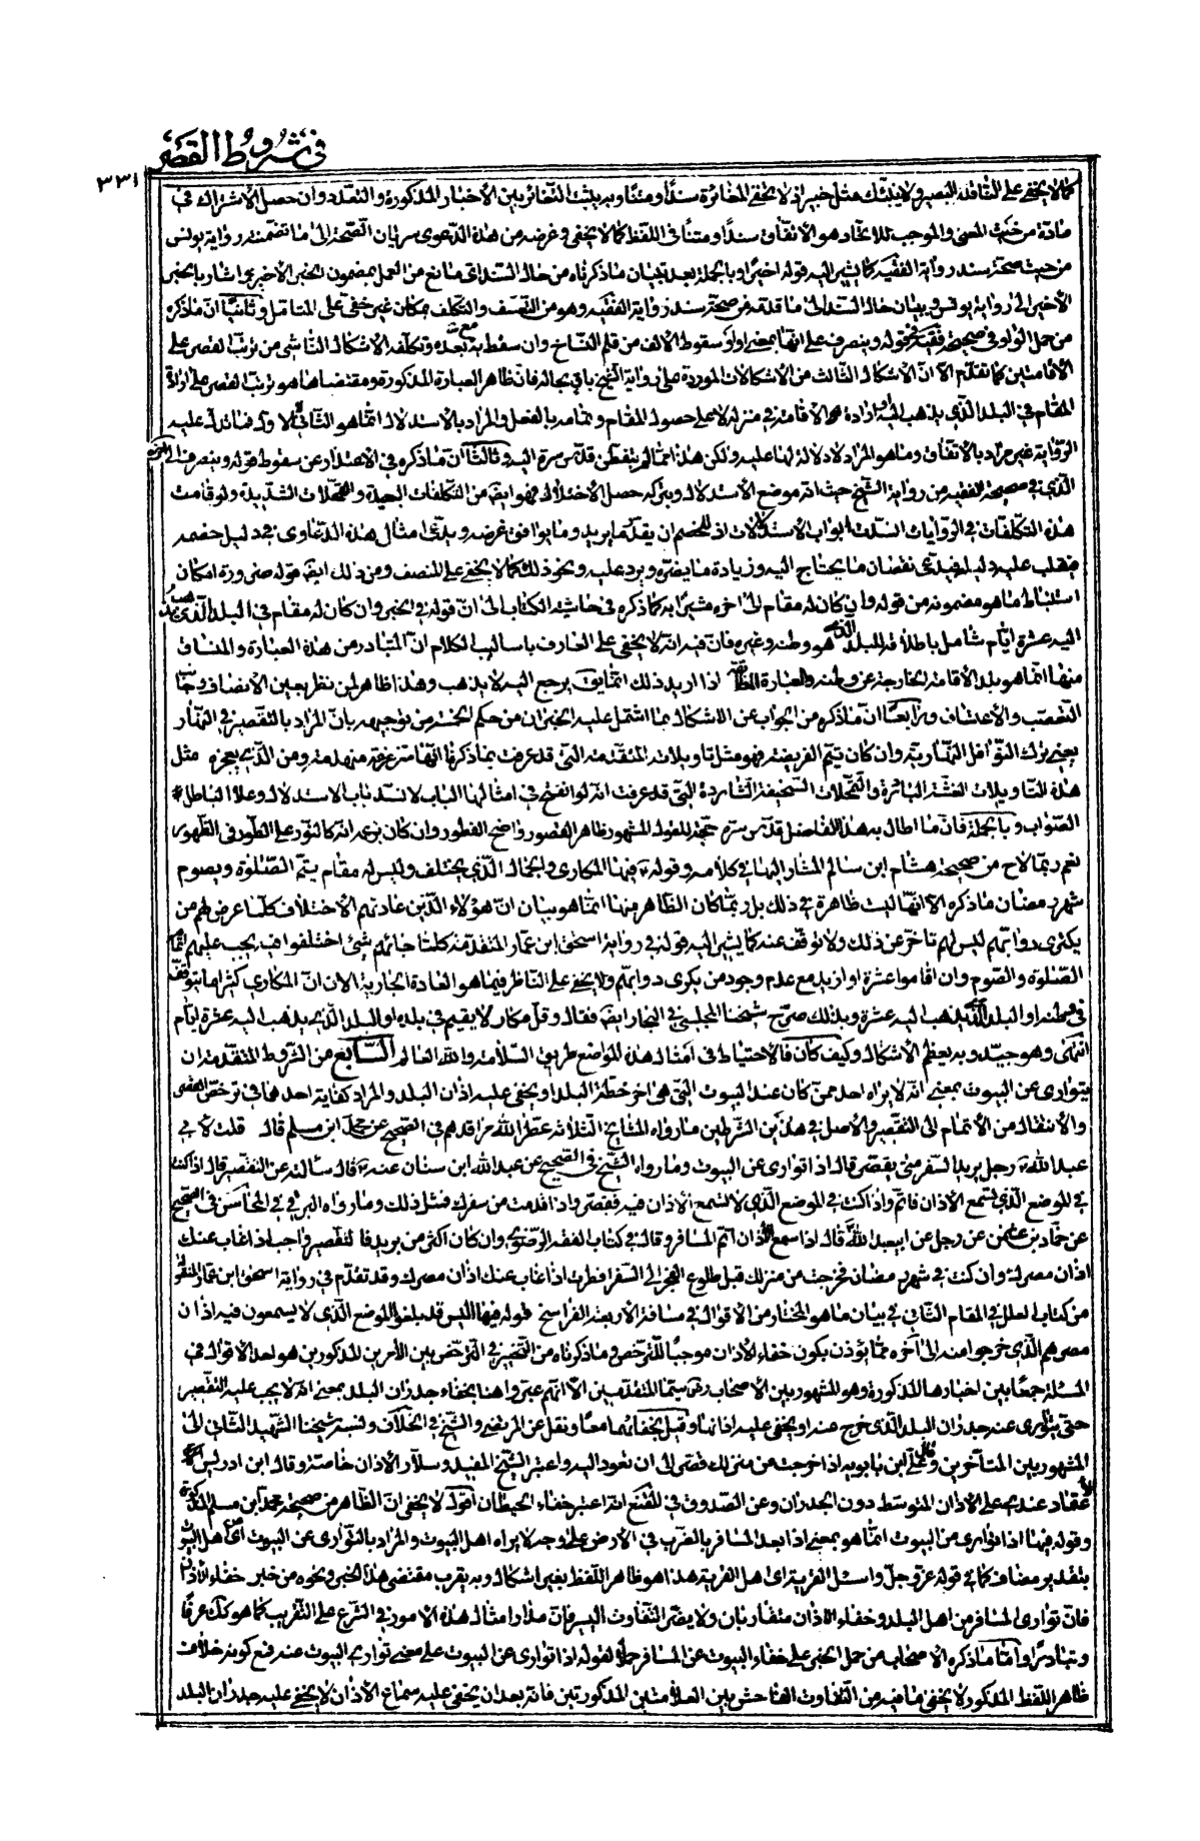 في شروط القصر
٣٣١
كما لا يخفى على الناقد البصير ولا ينبئك مثل خبير اذ لا يخفى المغائرة سندا ومتنا وبه يثبت التغائر بين الأخبار المذكورة والتعدد وان حصل الاشتراك في
مادة من حيث المعنى والموجب للاتحاد هو الاتفاق سندا ومتنا في اللفظ كما لا يخفى وغرضه من هذه الدعوى سريان الصحة الى ما تضمنته رواية يونس
من حيث صحة سند رواية الفقيه كما يشير اليه قوله اخيرا وبالجملة بعد تبيان ما ذكرناه من حال السند اي مانع من العمل بمضمون الخبر الأخير واشار بالخبر
الأخير الى رواية يونس وببيان حال السند الى ما قدمه من صحة سند رواية الفقيه وهو من التعسف والتكلف بمكان غير خفي على المتأمل وثانيا ان ما ذكره
من حمل الواو في صحيحة الفقيه في قوله وينصرف على انها بمعنى او او سقوط الالف من قلم النساخ وان سقط به مع بعده وتكلفه الاشكال الناشي من ترتب القصر على
الاقامتين كما تقدم الا ان الاشكال الثالث من الاشكالات الموردة على رواية الشيخ باق بحاله فان ظاهر العبارة المذكورة ومقتضاها هو ترتب القصر على ارادة
المقام في البلد الذي يذهب اليه وارادة الاقامة في منزله لا على حصول المقام وتمامه بالفعل والمراد بالاستدلال انما هو الثاني لا الاول فما تدل عليه
الرواية غير مراد بالاتفاق وما هو المراد لا دلالة لها عليه ولكن هذا مما لم يتفطن قدس سره اليه وثالثا ان ما ذكره في الاعتذار عن سقوط قوله وينصرف الى منزله
الذي في صحيحة الفقيه من رواية الشيخ حيث انه موضع الاستدلال وبتركه حصل الاختلال فهو ايضا من التكلفات البعيدة والتمحلات الشديدة ولو قامت
هذه التكلفات في الروايات انسدت ابواب الاستدلالات اذ للخصم ان يقدر ما يريد وما يوافق غرضه ويدعي امثال هذه الدعاوى في دليل خصمه
فيقلب عليه دليله فيدعي نقصان ما يحتاج اليه وزيادة ما يضره ويرد عليه ونحو ذلك كما لا يخفى على المنصف ومن ذلك ايضا قوله ضرورة امكان
استنباط ما هو مضمونه من قوله وان كان له مقام الى اخره مشيرا به كما ذكره في حاشية الكتاب الى ان قوله في الخبر وان كان له مقام في البلد الذي يذهب
اليه عشرة ايام شامل باطلاقه للبلد الذي هو وطنه وغيره فان فيه انه لا يخفى على العارف باساليب الكلام ان المتبادر من هذه العبارة والمنساق
منها انما هو بلد الاقامة الخارجة عن وطنه والعبارة الظاهرة اذا اريد ذلك انما يقال يرجع اليه لا يذهب وهذا ظاهر لمن نظر بعين الانصاف وجانب
التعصب والاعتساف ورابعا ان ما ذكره من الجواب عن الاشكال بما اشتمل عليه الخبران من حكم الخمسة من توجيهه بان المراد بالتقصير في النهار
يعني ترك النوافل النهارية وان كان يتم الفريضة فهو مثل تاويلاته المتقدمة التي قد عرفت بما ذكرنا انها متزعزعة منهدمة ومن الذي يعجزه مثل
هذه التاويلات الغثة البائرة والتمحلات السخيفة الشاردة التي قد عرفت انه لو انفتح في امثالها الباب لانسد باب الاستدلال وعلا الباطل
الصواب وبالجملة فان ما اطال به هذا الفاضل قدس سره حجة للقول المشهور ظاهر القصور واضح الفطور وان كان بزعمه انه كالنور على الطور في الظهور
نعم ربما لاح من صحيحة هشام ابن سالم المشار اليها في كلامه وقوله ع فيها المكاري والجمال الذي يختلف وليس له مقام يتم الصلوة ويصوم
شهر رمضان ما ذكره الا انها ليست ظاهرة في ذلك بل ربما كان الظاهر منها انما هو بيان ان هؤلاء الذين عادتهم الاختلاف كلما عرض لهم من
يكترى دوابهم ليس لهم تاخر عن ذلك ولا توقف عنه كما يشير اليه قوله في رواية اسحق ابن عمار المتقدمة كلما جائهم شئ اختلفوا فيجب عليهم اتمام
الصلوة والصوم وان اقاموا عشرة او ازيد مع عدم وجود من يكرى دوابهم ولا يخفى على الناظر فيما هو العادة الجارية الان ان المكاري كثيرا ما يتوقف
في وطنه او البلد الذي يذهب اليه عشرة وبذلك صرح شيخنا المجلسي في البحار ايضا فقال وقل مكار لا يقيم في بلده او البلد الذي يذهب اليه عشرة ايام
انتهى وهو جيد وبه يعظم الاشكال وكيف كان فالاحتياط في امثال هذه المواضع طريق السلامة والله العالم السابع من الشروط المتقدمة ان
يتوارى عن البيوت بمعنى انه لا يراه احد ممن كان عند البيوت التي هي اخر خطة البلد او يخفى عليه اذان البلد والمراد كفاية احدهما في ترخص القصر
والانتقال من الاتمام الى التقصير والاصل في هذين الشرطين ما رواه المشايخ الثلاثة عطر الله مراقدهم في الصحيح عن محمد ابن مسلم قال قلت لابي
عبد الله ع رجل يريد السفر متى يقصر قال اذا توارى عن البيوت وما رواه الشيخ في الصحيح عن عبد الله ابن سنان عنه ع قال سألته عن التقصير قال اذا كنت
في الموضع الذي تسمع الاذان فاتم واذا كنت في الموضع الذي لا تسمع الاذان فيه فقصر واذا قدمت من سفرك فمثل ذلك وما رواه البرقي في المحاسن في الصحيح
عن حماد بن عثمن عن رجل عن ابي عبد الله ع قال اذا سمع الاذان اتم المسافر وقال في كتاب الفقه الرضوي وان كان اكثر من بريد فالتقصير واجب اذا غاب عنك
اذان مصرك وان كنت في شهر رمضان فخرجت من منزلك قبل طلوع الفجر الى السفر افطرت اذا غاب عنك اذان مصرك وقد تقدم في رواية اسحق ابن عمار المنقولة
من كتاب العلل في المقام الثاني في بيان ما هو المختار من الاقوال في مسافة الاربعة الفراسخ قوله فيها اليس قد بلغوا الموضع الذي لا يسمعون فيه اذان
مصرهم الذي خرجوا منه الى آخره مما يؤذن بكون خفاء الاذان موجبا للترخص وما ذكرناه من التخيير في الترخص بين الامرين المذكورين هو احد الاقوال في
المسئلة جمعا بين اخبارها المذكورة وهو المشهور بين الاصحاب رض سيما المتقدمين الا انهم عبروا هنا بخفاء جدران البلد بمعنى انه لا يجب عليه التقصير
حتى يتوارى عنه جدران البلد الذي خرج عنه او يخفى عليه اذانها وقيل بخفائهما معا ونقل عن المرتضى والشيخ في الخلاف ونسبه شيخنا الشهيد الثاني الى
المشهور بين المتأخرين وقال علي ابن بابويه اذا خرجت من منزلك فقصر الى ان تعود اليه واعتبر الشيخ المفيد وسلار الاذان خاصة وقال ابن ادريس
الاعتماد عندي على الاذان المتوسط دون الجدران وعن الصدوق في المقنع انه اعتبر خفاء الحيطان اقول لا يخفى ان الظاهر من صحيحة محمد ابن مسلم المذكورة
وقوله فيها اذا توارى من البيوت انما هو بمعنى اذا بعد المسافر بالضرب في الارض على وجه لا يراه اهل البيوت والمراد بالتوارى عن البيوت اي اهل البيوت
بتقدير مضاف كما في قوله عز وجل واسئل القرية اى اهل القرية هذا هو ظاهر اللفظ بغير اشكال وبه يقرب مقتضى هذا الخبر ونحوه من خبر خفاء الاذان
فان توارى المسافر من اهل البلد وخفاء الاذان متقاربان ولا يضر التفاوت اليسير فان مدار امثال هذه الامور في الشرع على التقريب كما هو كذلك عرفا
وتبادرا واما ما ذكره الاصحاب من حمل الخبر على خفاء البيوت عن المسافر حملا لقوله اذا توارى عن البيوت على معنى توارى البيوت عنه فمع كونه خلاف
ظاهر اللفظ المذكور لا يخفى ما فيه من التفاوت الفاحش بين العلامتين المذكورتين فانه بعد ان يخفى عليه سماع الاذان لا يخفى عليه جدران البلد